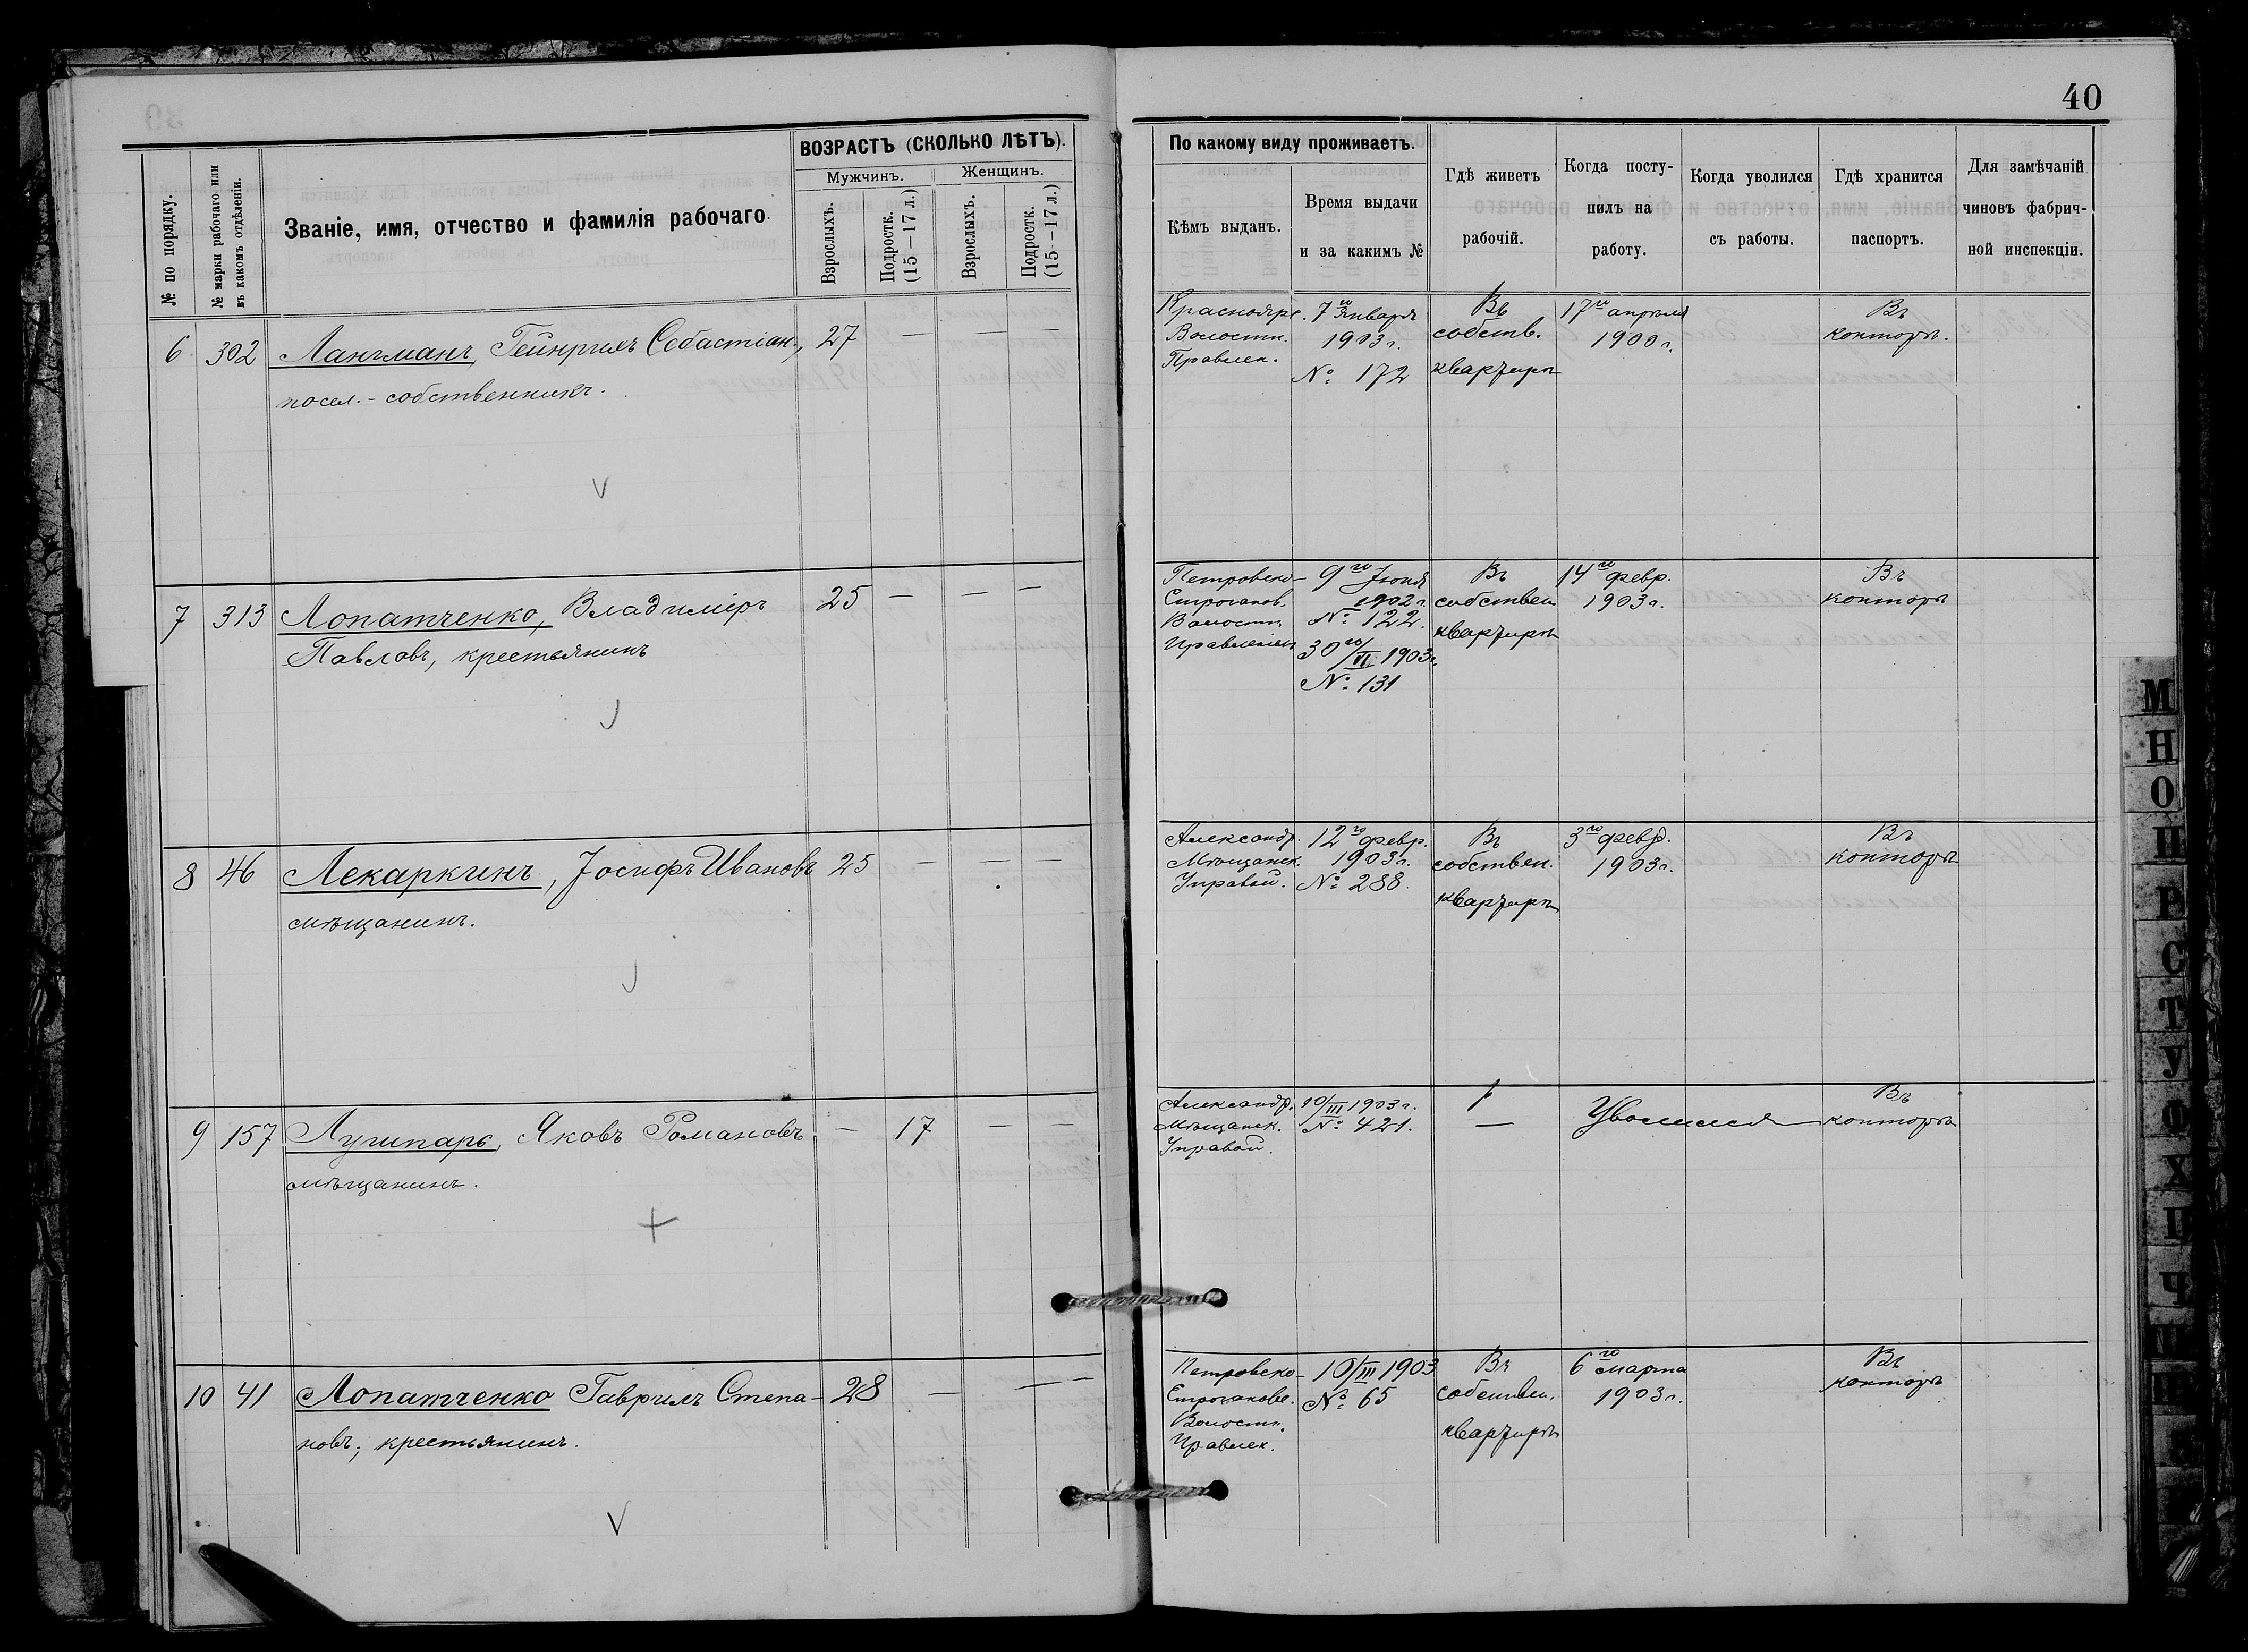 40
№ по порядку.
№ марки рабочаго или
въ какомъ отдѣленіи.
Званіе, имя, отчество и фамилія рабочаго
ВОЗРАСТЪ (СКОЛЬКО ЛѢТЪ).
Мужчинъ.
Женщинъ.
Взрослыхъ.
Подростк.
(15—17 л.)
Взрослыхъ.
Подростк.
(15—17 л.)
По какому виду проживаетъ.
Кѣмъ выданъ.
Время выдачи
и за какимъ №
Гдѣ живетъ
рабочій.
Когда посту-
пилъ на
работу.
Когда уволился
съ работы.
Гдѣ хранится
паспортъ.
Для замѣчаній
чиновъ фабрич-
ной инспекціи.
6 302 Лангманъ, Гейнрихъ Себастіан., 27 — — —
посел.-собственникъ.
Краснояре.
Волостн.
Правлен.
7го Января
1903 г.
№ 172
Въ
собств.
квартирѣ
17го апрѣля
1900 г.
Въ
конторѣ.
7 313 Лопатченко, Владиміръ 25 — — —
Павловъ, крестьянинъ
Петровско-
Строганов.
Волостн.
Правленіемъ
9го Іюня
1902 г.
№ 122.
30го/VI 1903 г.
№ 131
Въ
собствен
квартирѣ
14го февр.
1903 г.
Въ
конторѣ
8 46 Лекаркинъ, Іосифъ Ивановъ 25 — — —
мѣщанинъ.
Александр.
Мѣщанск.
Управой.
12го февр.
1903 г.
№ 288.
Въ
собствен.
квартирѣ
3го февр.
1903 г.
Въ
конторѣ
9 157 Лушпарь, Яковъ Романовъ — 17 — —
мѣщанинъ.
Александр.
Мѣщанск.
Управой.
10/III 1903 г.
№ 421.
—
Уволился
Въ
конторѣ
10 41 Лопатченко Гаврилъ Степа- 28 — — —
новъ, крестьянинъ.
Петровско-
Строгановс.
Волостн.
Правлен.
10/III 1903
№ 65
Въ
собствен.
квартирѣ
6го марта
1903 г.
Въ
конторѣ
М
Н
О
П
Р
С
Т
У
Ф
Х
Ц
Ч